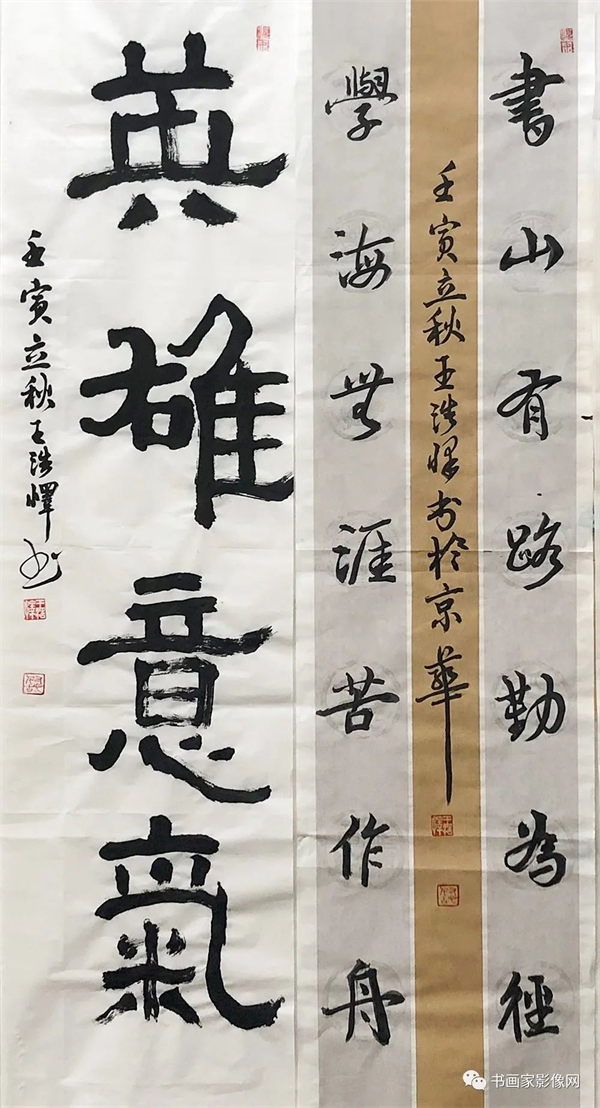 書山有路勤為徑
壬寅立秋王浩懌书於京華
學海無涯苦作舟
英雄意氣
壬寅立秋王浩懌书
书画家影像网